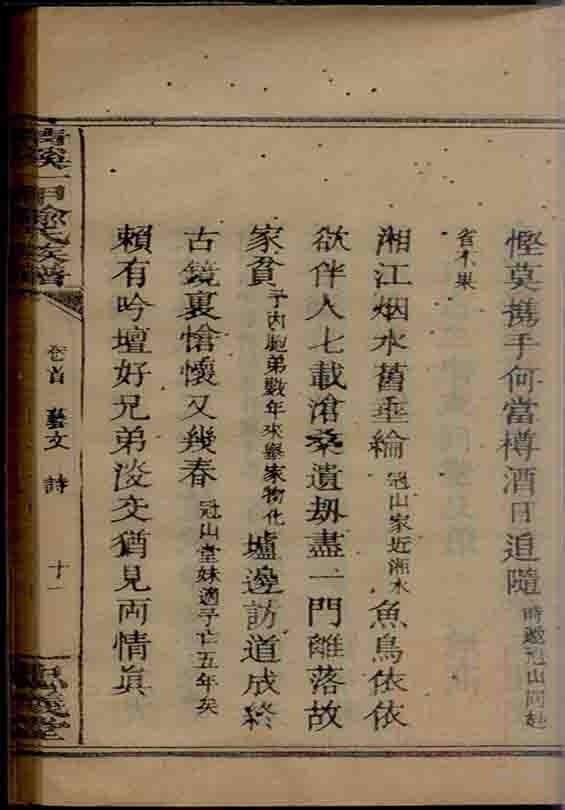 慳莫携手何當樽酒日追隨時邀冠山同赴
省不果
湘江烟水舊垂綸冠山家近湘水魚鳥依依
欲伴人七載滄桑遺刼盡一門離落故
家貧予內胞弟數年來舉家物化壚邊訪道成終
古鏡裏愴懷又幾春冠山堂妹適予亡五年矣
賴有吟壇好兄弟淡交猶見両情眞
清溪一甲 氏族譜
卷首 藝文 詩 十一
堂